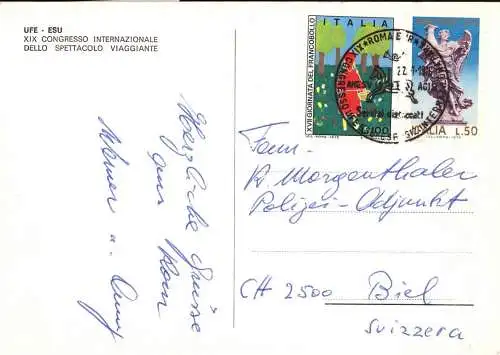 UFE - ESU
XIX CONGRESSO INTERNAZIONALE
DELLO SPETTACOLO VIAGGIANTE
Herzliche Grüsse
aus Rom
u.
ITALIA
XVII GIORNATA DEL FRANCOBOLLO
L.50
Fam.
R. Morgenthaler
Polizei-Adjunkt
CH 2500 Biel
Svizzera